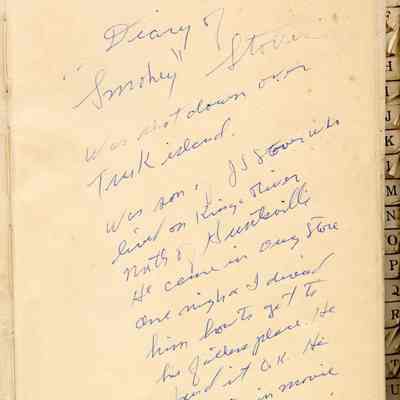 Diary of
"Smokey" Stover
was shot down over
Truk island.
Was son of JS Stover who
lived on Kings River
north of Huntsville
He came in our store
one night & I direced
him how to get to
his fathers place. He
found it O.K. He
in movie
F
H
I
J
K
L
M
N
O
P
Q
R
T
U